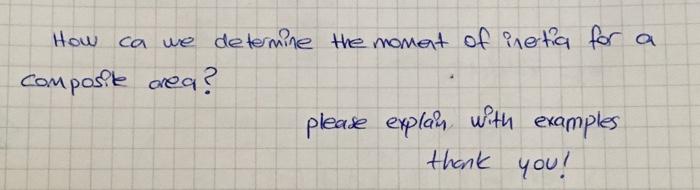 How ca we determine the moment of inetia for a
composite area?
please explain with examples
thank you!